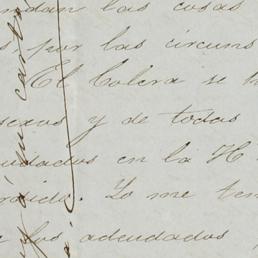 ndan las cosas
s por las circuns
El Colera se h
sexos y de todas
udados en la H
Yo me ten
los adeudados